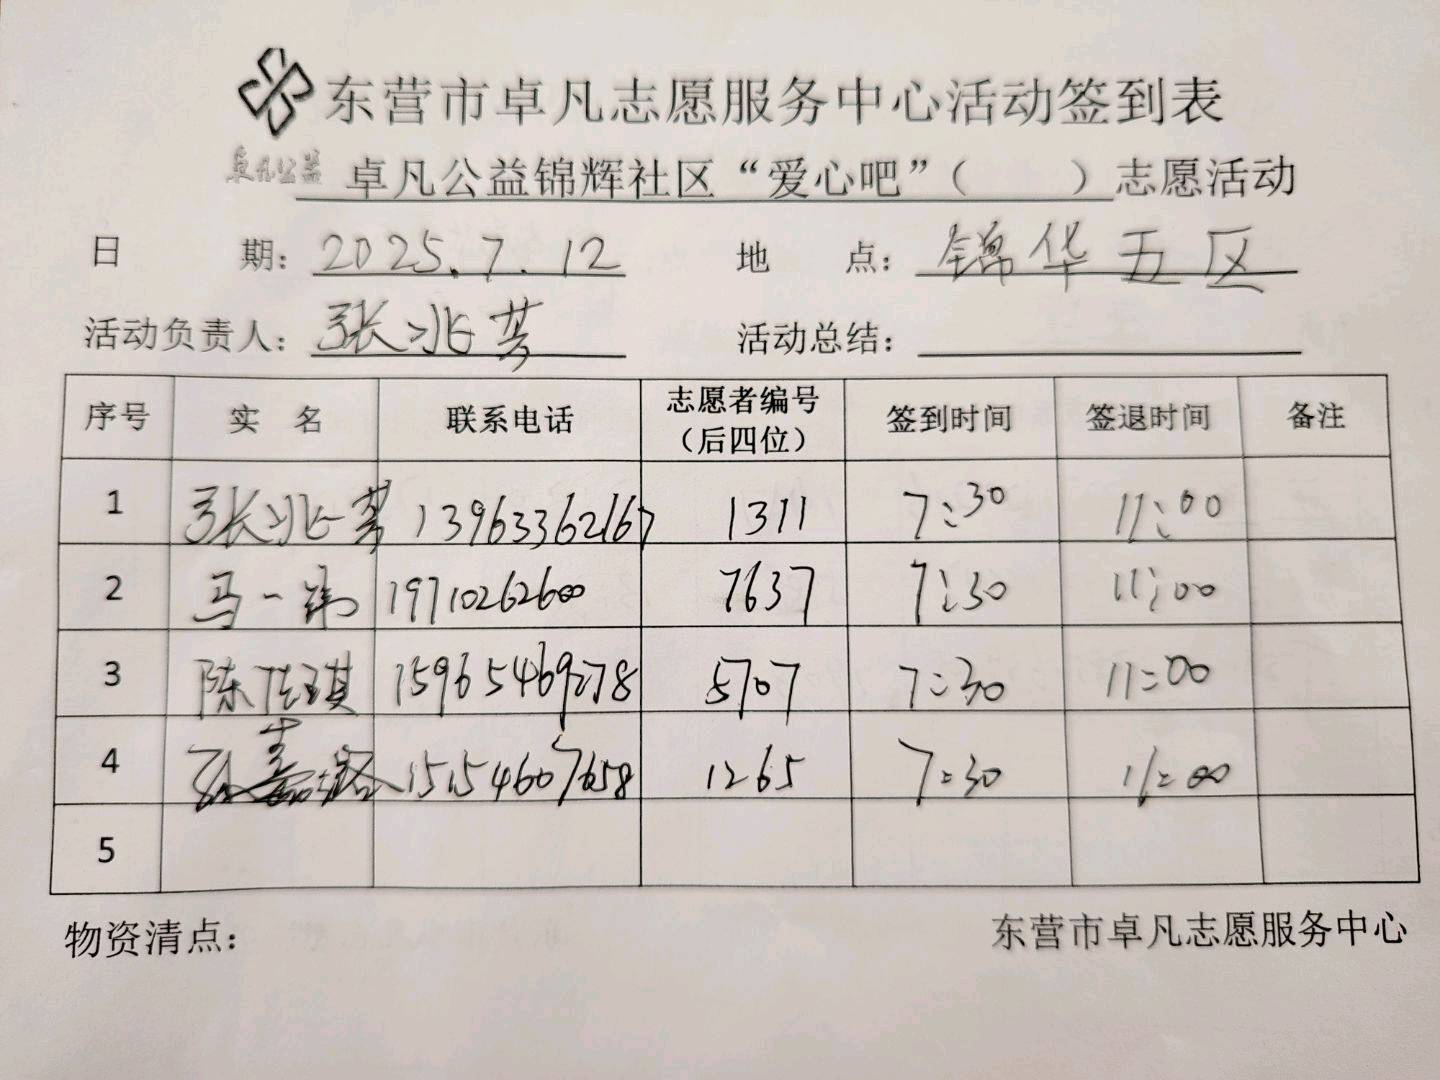 东营市卓凡志愿服务中心活动签到表
卓凡公益 卓凡公益锦辉社区“爱心吧”（ ）志愿活动
日 期：2025.7.12 地 点：锦华五区
活动负责人：张兆芳 活动总结：
序号 实 名 联系电话 志愿者编号（后四位） 签到时间 签退时间 备注
1 张兆芳 13963362167 1311 7:30 11:00
2 马一 19710262600 7637 7:30 11:00
3 陈佳琪 15965469278 5707 7:30 11:00
4 孙嘉璐 15154607658 1265 7:30 11:00
5
物资清点： 东营市卓凡志愿服务中心